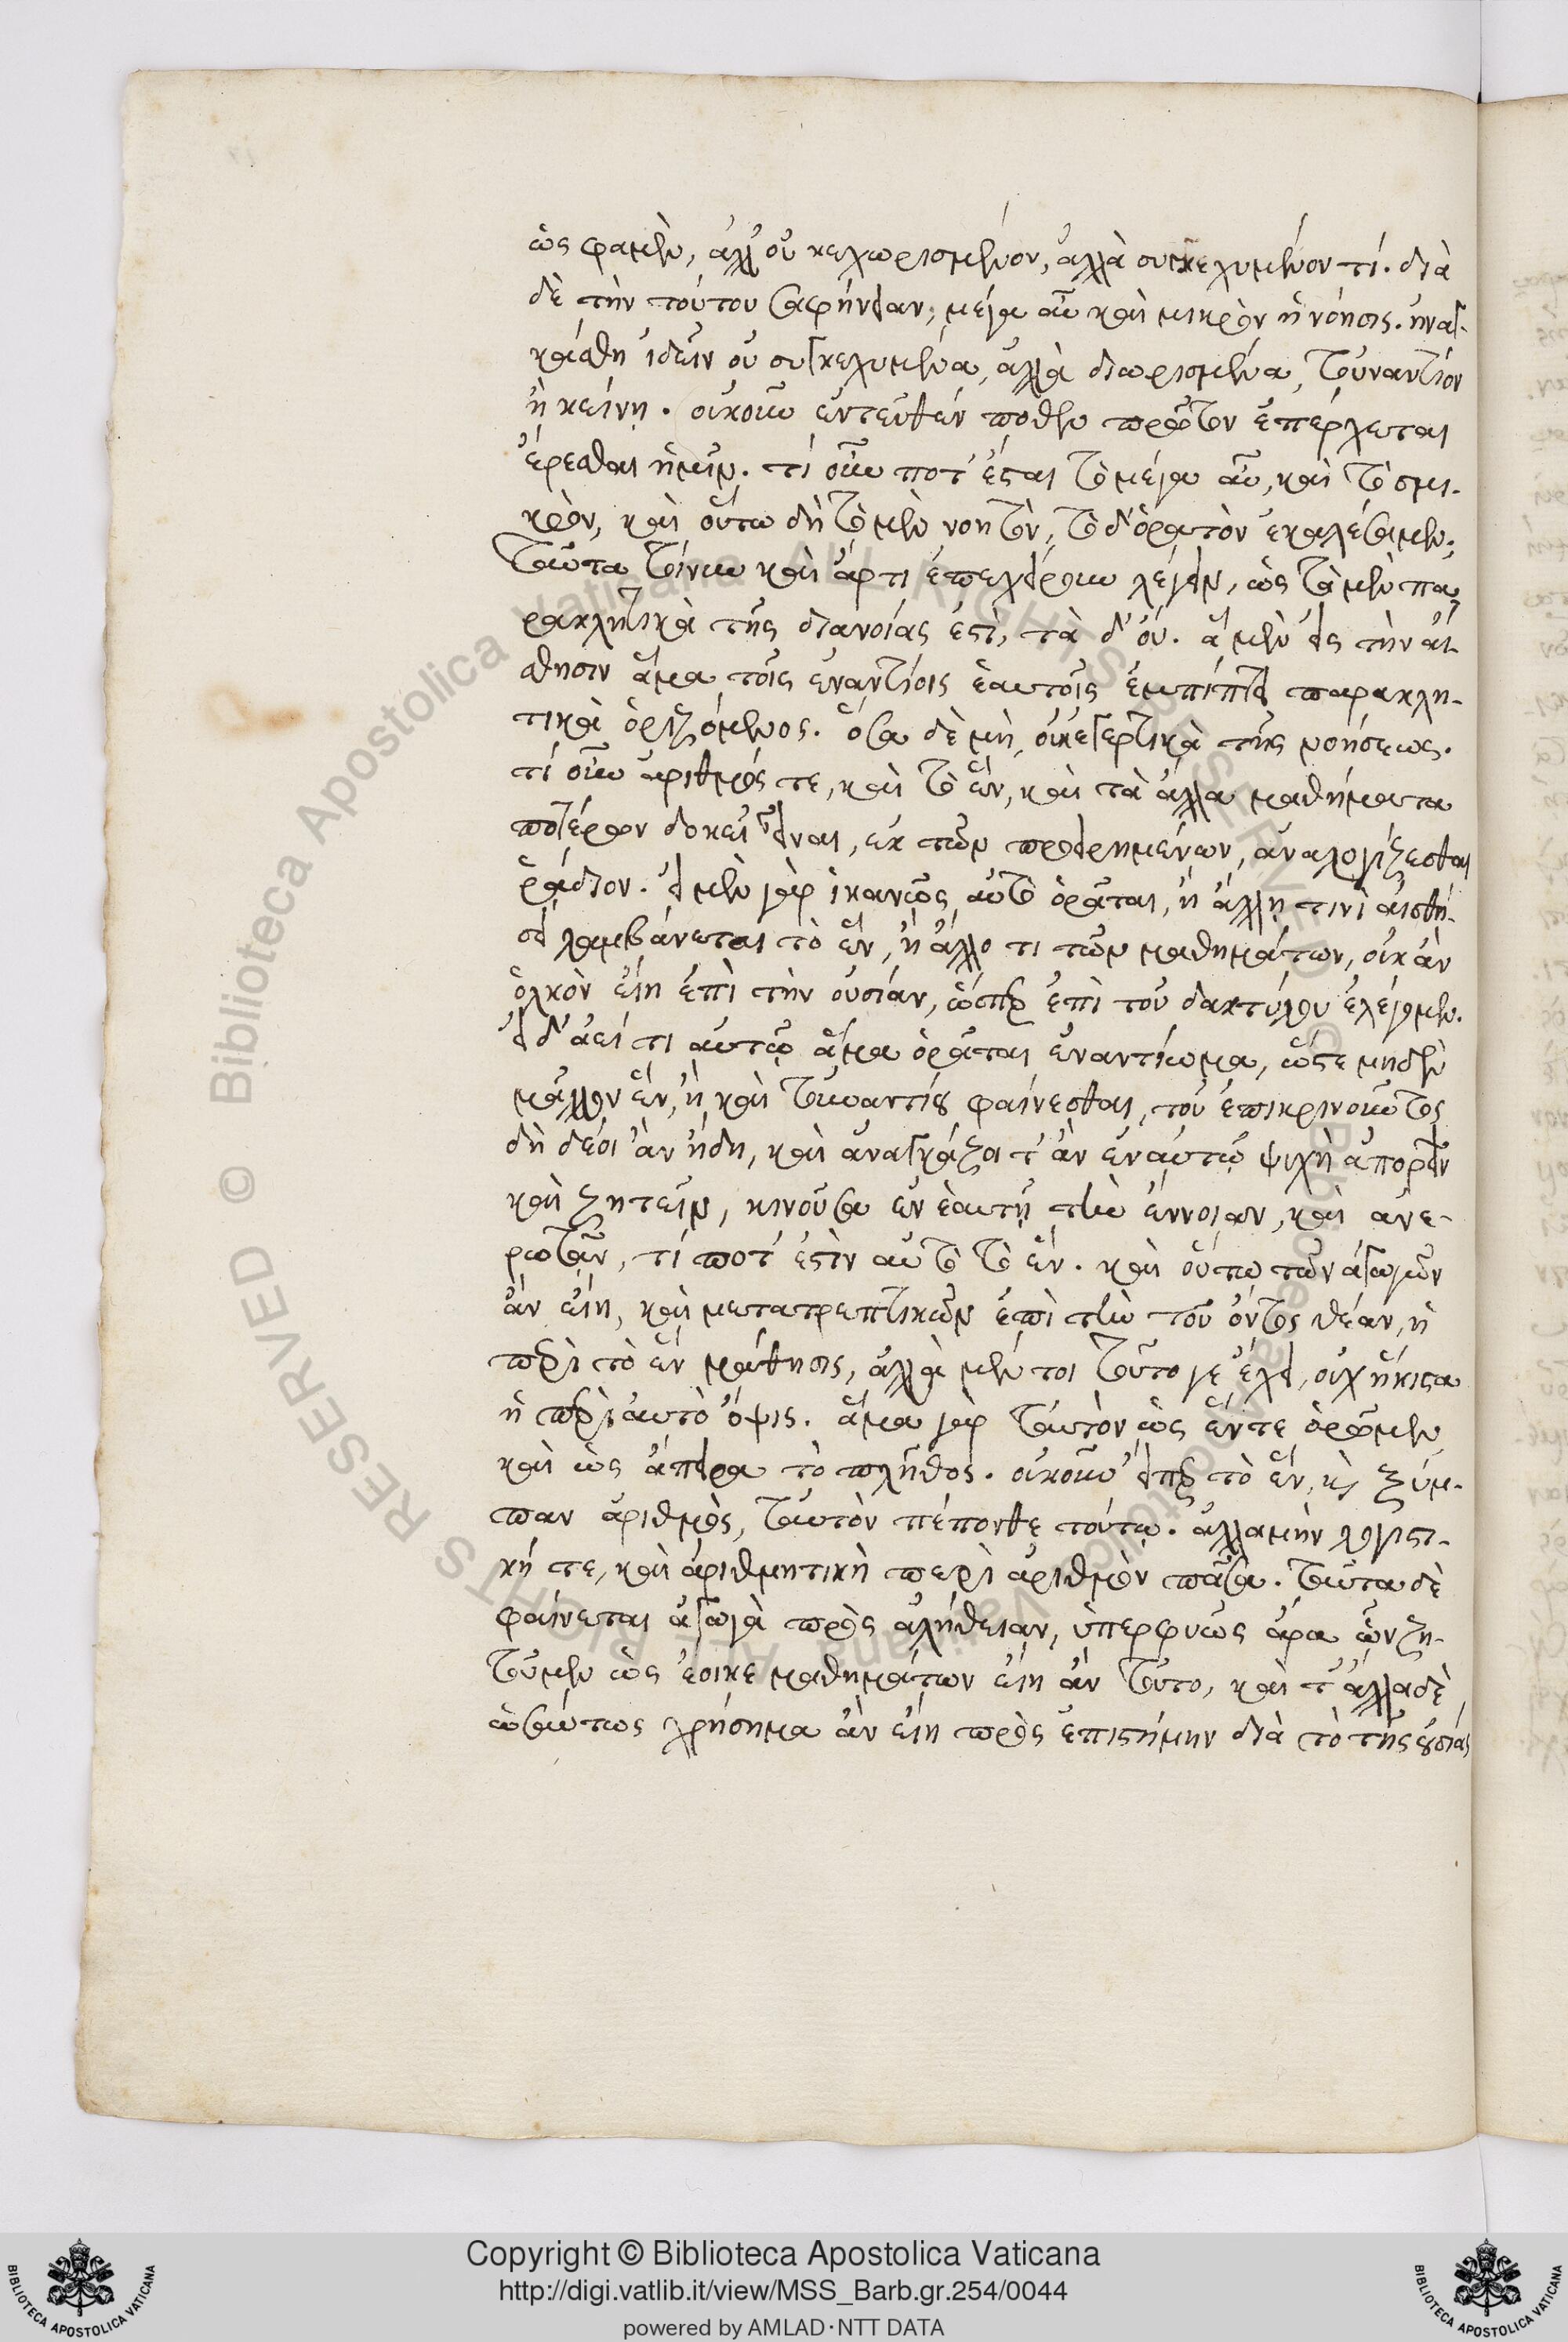 ὡς φαμὲν, ἀλλ' οὐ κεχωρισμένον, ἀλλὰ συγκεχυμένον τί. διὰ
δὲ τὴν τούτου σαφήνειαν, μέγα αὖ καὶ μικρὸν ἡ νόησις. ἠναγ-
κάσθη ἰδεῖν οὐ συγκεχυμένα, ἀλλὰ διωρισμένα, τοὐναντίον
ἢ κείνη. οὐκοῦν ἐντεῦθέν ποθεν πρῶτον ἐπέρχεται
ἐρέσθαι ἡμῖν. τί οὖν ποτ' ἐστὶ τὸ μέγα αὖ, καὶ τὸ σμι-
κρὸν, καὶ οὕτω δὴ τὸ μὲν νοητὸν, τὸ δ' ὁρατὸν ἐκαλέσαμεν;
ταῦτα τοίνυν καὶ ἄρτι ἐπεχείρουν λέγειν, ὡς τὰ μὲν πα
ρακλητικὰ τῆς διανοίας ἐστὶ, τὰ δ' οὔ. ἃ μὲν εἰς τὴν αἴ-
σθησιν ἅμα τοῖς ἐναντίοις ἑαυτοῖς ἐμπίπτει παρακλη-
τικὰ ὁριζόμενος. ὅσα δὲ μὴ, οὐκ ἐγερτικὰ τῆς νοήσεως.
τί οὖν ἀριθμός τε, καὶ τὸ ἓν, καὶ τὰ ἄλλα μαθήματα
ποτέρων δοκεῖ εἶναι, ἐκ τῶν προειρημένων, ἀναλογίζεσθαι
ῥάδιον. εἰ μὲν γὰρ ἱκανῶς αὐτὸ ὁρᾶται, ἢ ἄλλη τινὶ αἰσθή-
σει λαμβάνεται τὸ ἓν, ἢ ἄλλο τι τῶν μαθημάτων, οὐκ ἂν
ὁλκὸν εἴη ἐπὶ τὴν οὐσίαν, ὥσπερ ἐπὶ τοῦ δακτύλου ἐλέγομεν.
εἰ δ' ἀεί τι αὐτῷ ἅμα ὁρᾶται ἐναντίωμα, ὥστε μηδὲν
μᾶλλον ἓν, ἢ καὶ τοὐναντίον φαίνεσθαι, τοῦ ἐπικρινοῦντος
δὴ δέοι ἂν ἤδη, καὶ ἀναγκάζοι τ' ἂν ἐν αὐτῷ ψυχὴ ἀπορεῖν
καὶ ζητεῖν, κινοῦσα ἐν ἑαυτῇ τὴν ἔννοιαν, καὶ ἀνε-
ρωτᾶν, τί ποτ' ἐστὶν αὐτὸ τὸ ἕν. καὶ οὕτω τῶν ἀγωγῶν
ἂν εἴη, καὶ μετατρεπτικῶν ἐπὶ τὴν τοῦ ὄντος θέαν, ἡ
περὶ τὸ ἓν μάθησις, ἀλλὰ μέν τοι τοῦτο γε ἔχει, οὐχ ἥκιστα
ἡ περὶ αὐτὸ ὄψις. ἅμα γὰρ ταὐτὸν ὡς ἕν τε ὁρῶμεν
καὶ ὡς ἄπειρα τὸ πλῆθος. οὐκοῦν εἴπερ τὸ ἓν, κὶ ξύμ-
παν ἀριθμὸς, ταὐτὸν πέπονθε τούτῳ. ἀλλαμὴν λογιστ-
κή τε, καὶ ἀριθμητικὴ περὶ ἀριθμὸν πᾶσα. ταῦτα δὲ
φαίνεται ἀγωγὰ πρὸς ἀλήθειαν, ὑπερφυῶς ἄρα ὧν ζη-
τοῦμεν ὡς ἔοικε μαθημάτων εἴη ἂν τοῦτο, καὶ τ' ἄλλα δὲ
ὡσαύτως χρήσημα ἂν εἴη πρὸς ἐπιστήμην διὰ τὸ τῆς οὐσίας
Copyright © Biblioteca Apostolica Vaticana
http://digi.vatlib.it/view/MSS_Barb.gr.254/0044
powered by AMLAD·NTT DATA